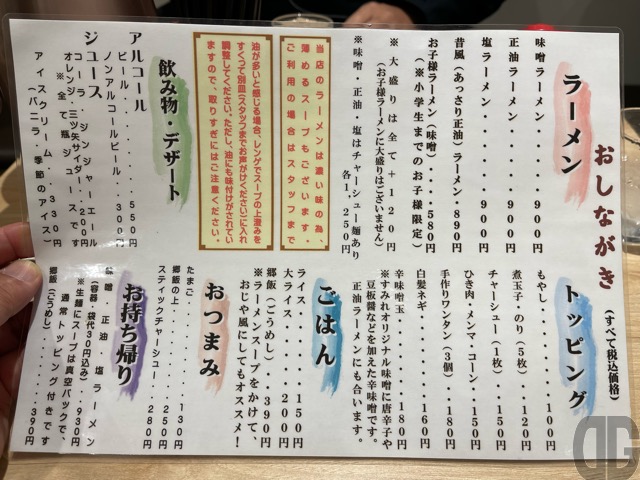 おしながき
(すべて税込価格)
ラーメン
味噌ラーメン・・・・・９００円
正油ラーメン・・・・・９００円
塩ラーメン・・・・・・９００円
昔風(あっさり正油)ラーメン・８９０円
お子様ラーメン(味噌)・・・５８０円
(※小学生までのお子様限定)
※大盛りは全て＋１２０円
(お子様ラーメンに大盛りはございません)
※味噌・正油・塩はチャーシュー麺あり
各１,２５０円
当店のラーメンは濃い味の為、
薄めるスープもございます。
ご利用の場合はスタッフまで
油が多いと感じる場合、レンゲでスープの上澄みを
すくって別皿(スタッフまでお声がけください)に入れ
調整してください。ただし、油にも味付けがされてい
ますので、取りすぎにはご注意ください。
飲み物・デザート
アルコール
ビール・・・・・・・・５５０円
ノンアルコールビール・・３００円
ジュース
コーラ ジンジャーエール
オレンジ・三ツ矢サイダー・・２００円
※全て瓶ジュースです
アイスクリーム・・３３０円
(バニラ・季節のアイス)
トッピング
もやし・・・・・・・１００円
煮玉子・のり(５枚)・・１２０円
チャーシュー(１枚)・・１５０円
ひき肉・メンマ・コーン・１５０円
手作りワンタン(３個)・・１８０円
白髪ネギ・・・・・・１６０円
辛味噌玉・・・・・・１８０円
※すみれオリジナル味噌に唐辛子や
豆板醤などを加えた辛味噌です。
正油ラーメンにも合います。
ごはん
ライス・・・・・１５０円
大ライス・・・・２００円
郷飯(ごうめし)・・３９０円
※ラーメンスープをかけて、
おじや風にしてもオススメ！
おつまみ
たまご・・・・・・・１３０円
郷飯の上・・・・・・２５０円
スティックチャーシュー・・２８０円
お持ち帰り
味噌 正油 塩 ラーメン
(容器・袋代３０円込み)・・９３０円
※生麺にスープは真空パックで、
通常トッピング付きです
郷飯(ごうめし)・・・・３９０円
DG